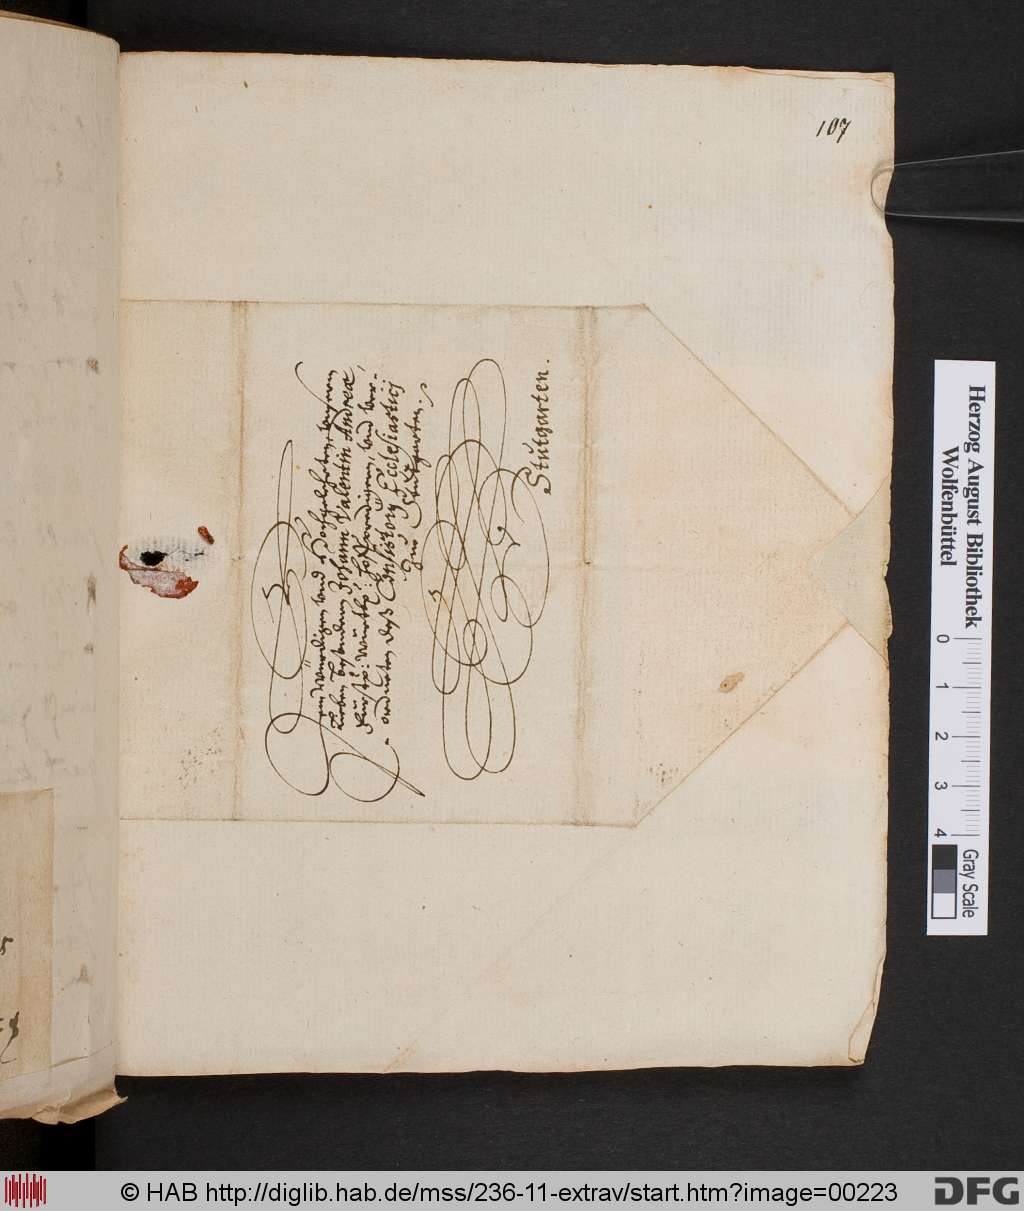 107
Dem Würdigen und Hochgelehrten, meinem
lieben besondern Johann Valentin Andreæ
Fürstl: Württ: Hofpredigern, und Ver-
ordneten deß Consistorij Ecclesiastici
zue Stuttgarten.
Stutgarten.
Herzog August Bibliothek
Wolfenbüttel
0 1 2 3 4
Gray Scale
© HAB http://diglib.hab.de/mss/236-11-extrav/start.htm?image=00223
DFG